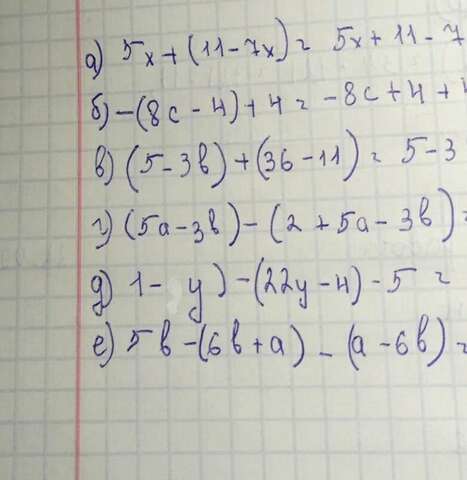 а) 5x + (11 - 7x) = 5x + 11 - 7
б) -(8c - 4) + 4 = -8c + 4 +
в) (5 - 3b) + (3b - 11) = 5 - 3
г) (5a - 3b) - (2 + 5a - 3b) =
д) 1 - y) - (22y - 4) - 5 =
е) 5b - (6b + a) - (a - 6b) =